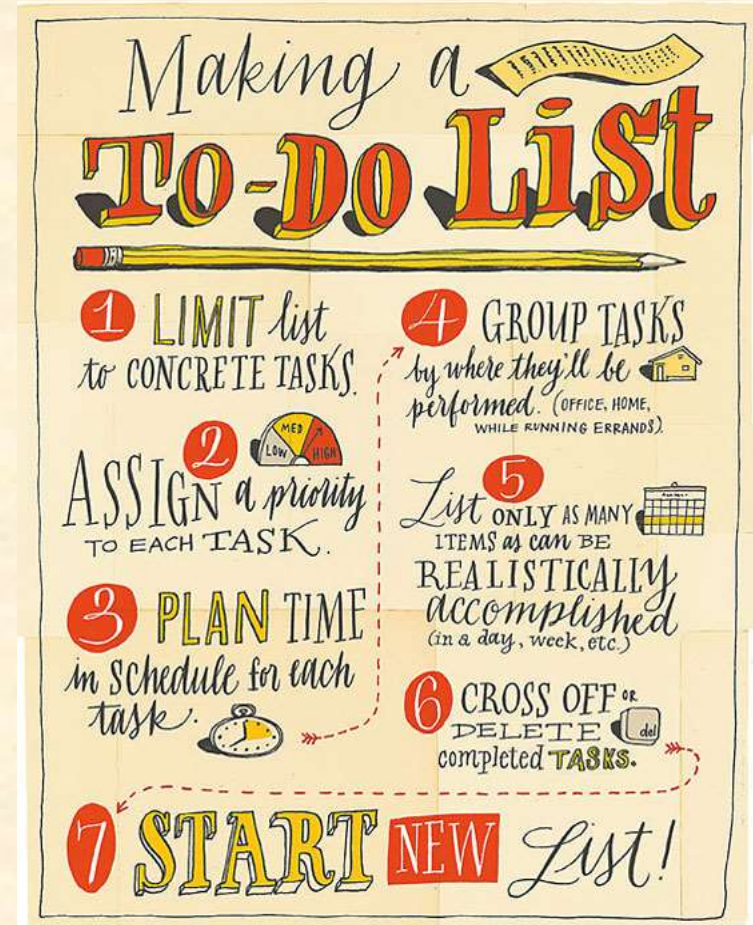 Making a
TO-DO LiST
1 LIMIT list
to CONCRETE TASKS.
2
LOW MED HIGH
ASSIGN a priority
TO EACH TASK.
3 PLAN TIME
in schedule for each
task.
4 GROUP TASKS
by where they'll be
performed. (OFFICE, HOME,
WHILE RUNNING ERRANDS).
5
List ONLY AS MANY
ITEMS as can BE
REALISTICALLY
accomplished
(in a day, week, etc.)
6 CROSS OFF OR
DELETE del
completed TASKS.
7 START NEW List!